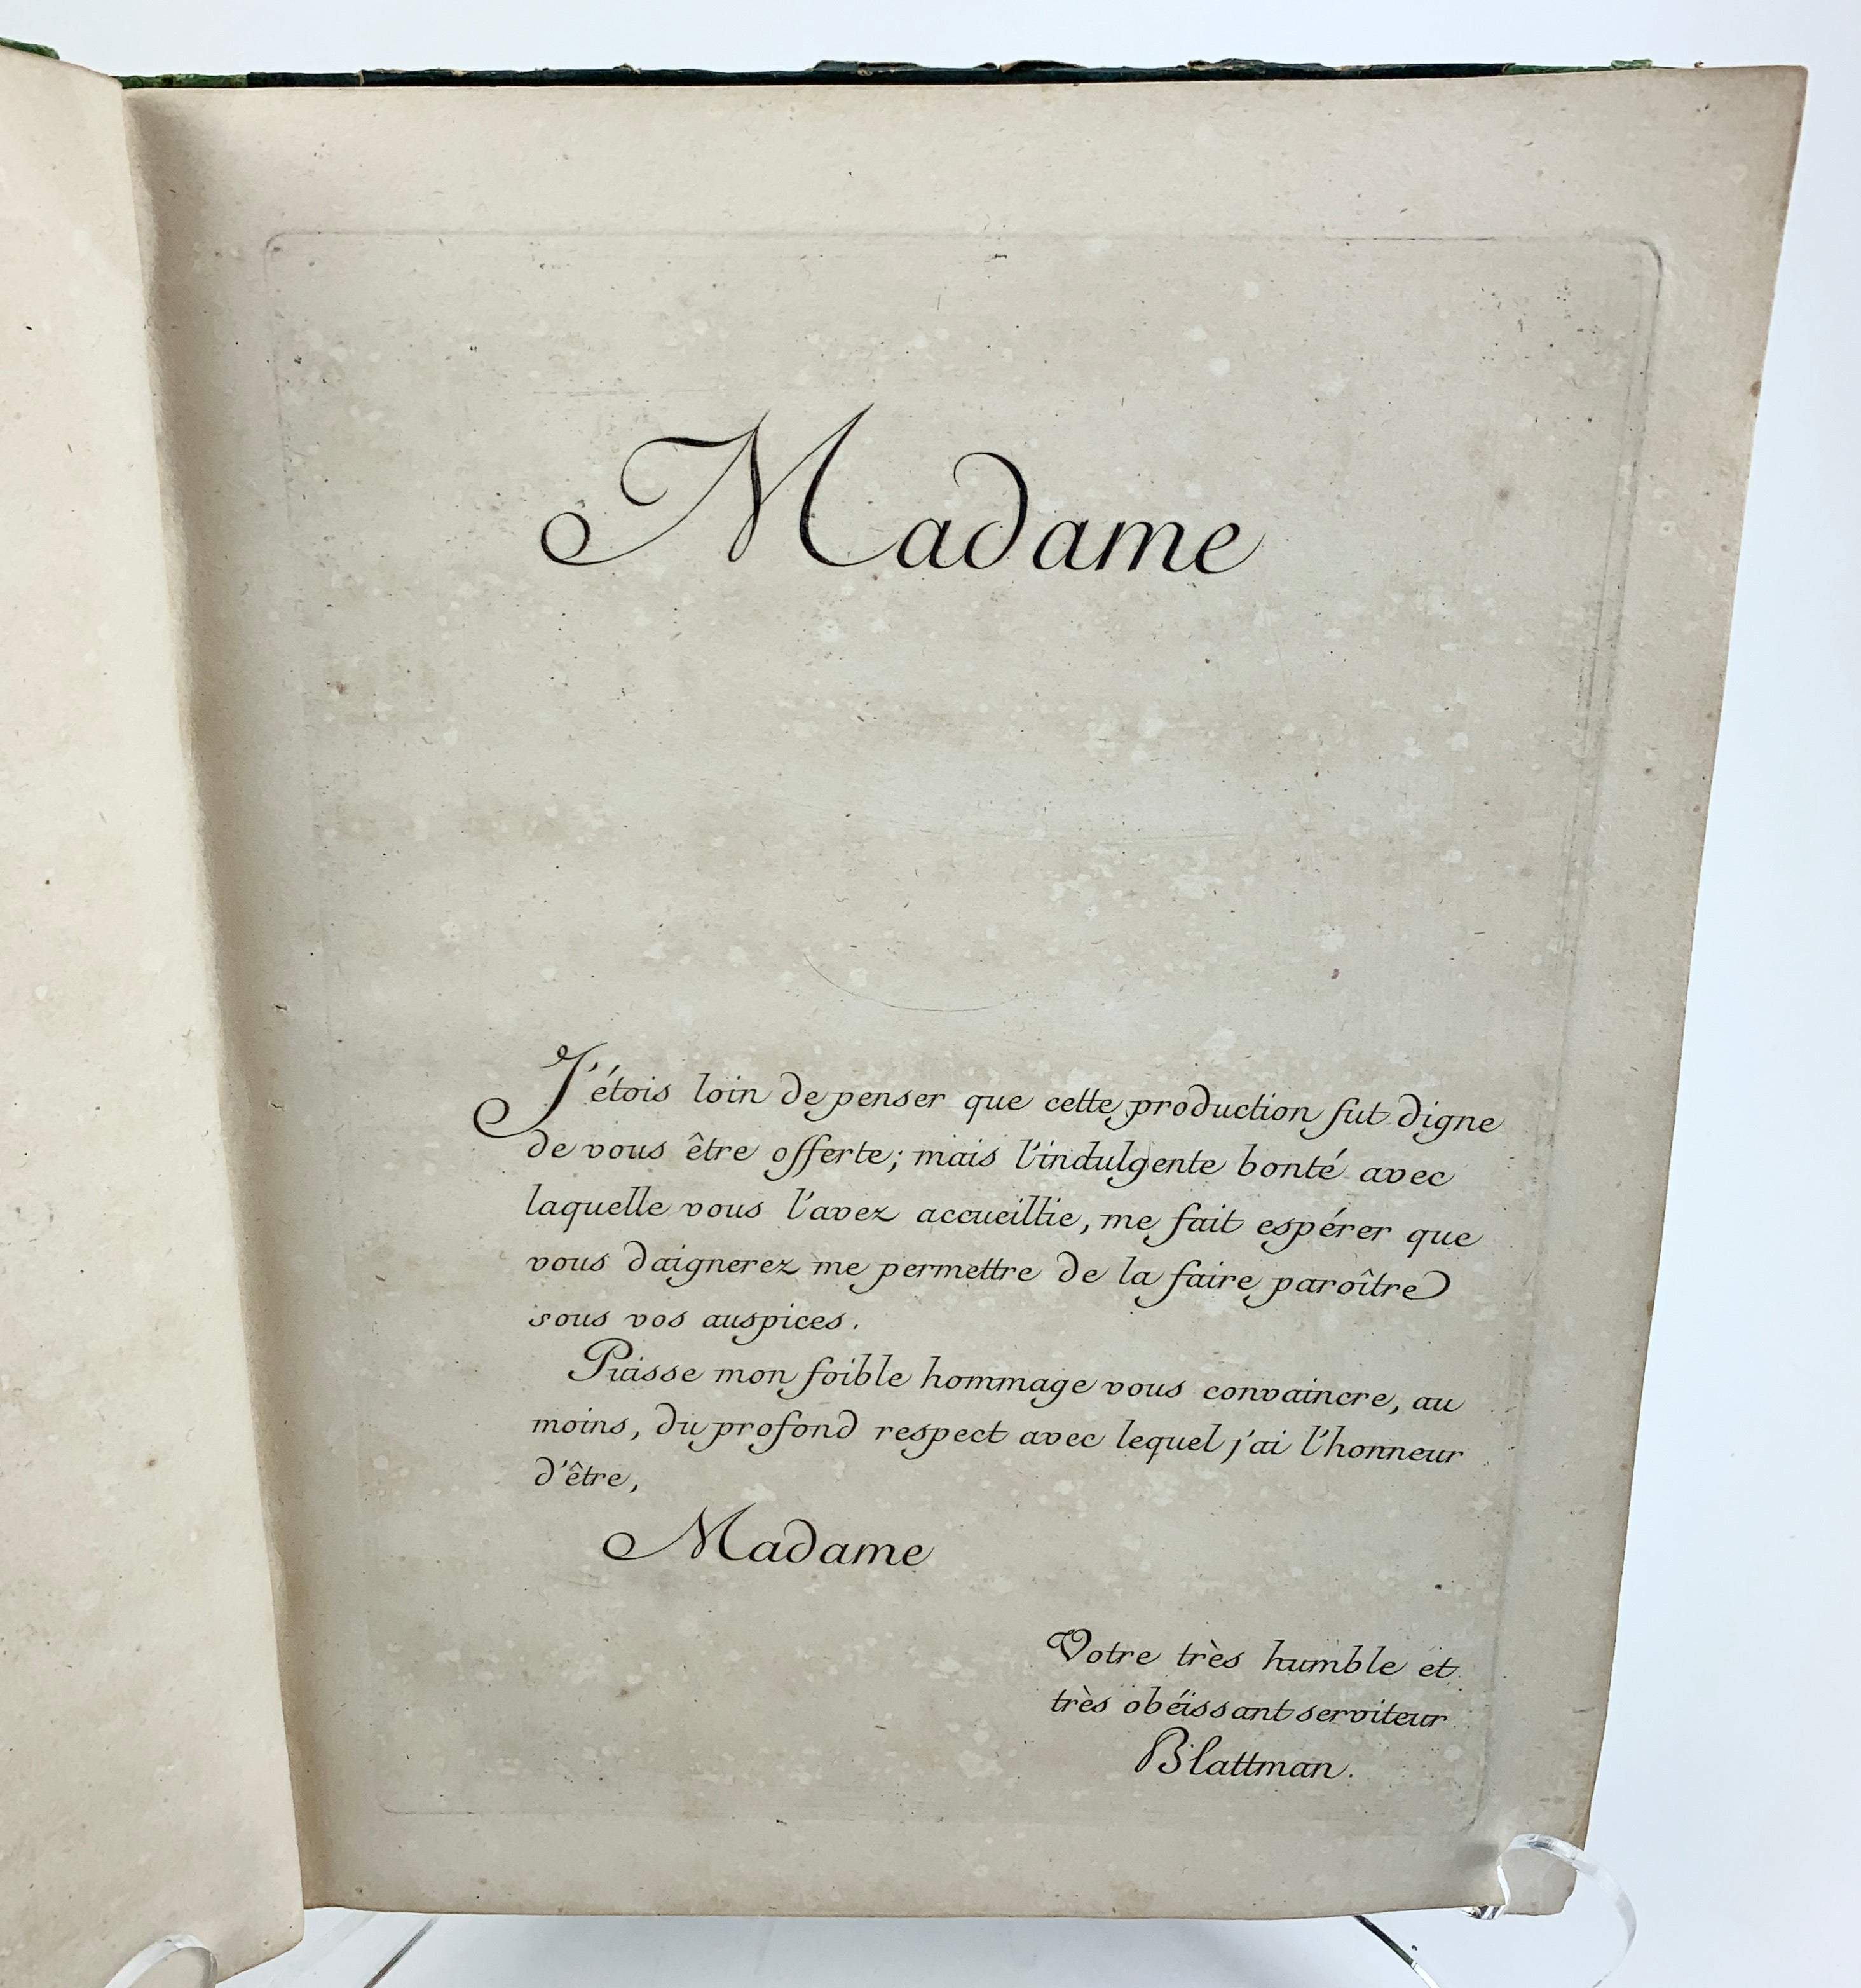 Madame
J'étois loin de penser que cette production fut digne
de vous être offerte; mais l'indulgente bonté avec
laquelle vous l'avez accueillie, me fait espérer que
vous daignerez me permettre de la faire paroître
sous vos auspices.
Puisse mon foible hommage vous convaincre, au
moins, du profond respect avec lequel j'ai l'honneur
d'être,
Madame
Votre très humble et
très obéissant serviteur
Blattman.